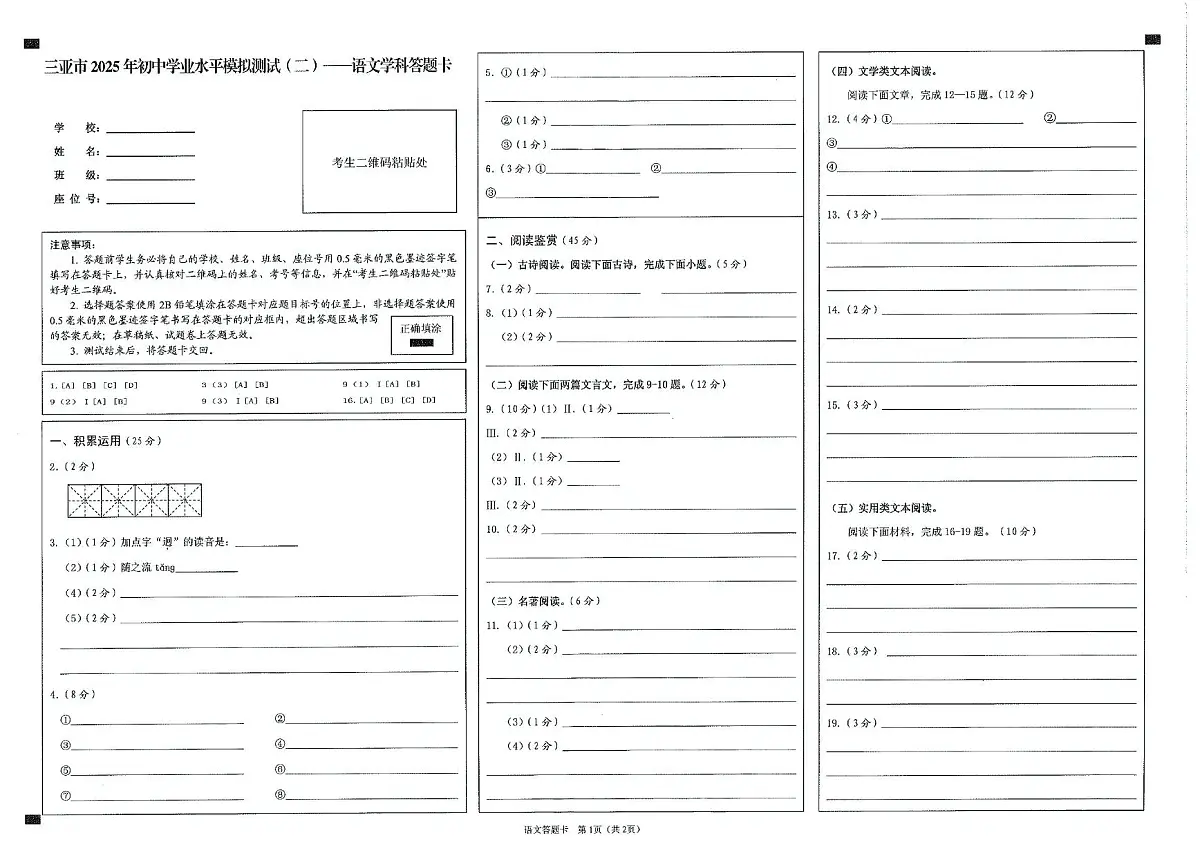 三亚市2025年初中学业水平模拟测试（二）——语文学科答题卡
学　　校：
姓　　名：
班　　级：
座 位 号：
考生二维码粘贴处
注意事项：
1. 答题前学生务必将自己的学校、姓名、班级、座位号用0.5毫米的黑色墨迹签字笔
填写在答题卡上，并认真核对二维码上的姓名、考号等信息，并在“考生二维码粘贴处”贴
好考生二维码。
2. 选择题答案使用2B铅笔填涂在答题卡对应题目标号的位置上，非选择题答案使用
0.5毫米的黑色墨迹签字笔书写在答题卡的对应框内，超出答题区域书写
的答案无效；在草稿纸、试题卷上答题无效。
3. 测试结束后，将答题卡交回。
正确填涂
1.[A] [B] [C] [D]　3（3）[A] [B]　9（1） I[A] [B]
9（2） I[A] [B]　9（3） I[A] [B]　16.[A] [B] [C] [D]
一、积累运用（25分）
2.（2分）
3.（1）（1分）加点字“迥”的读音是：
（2）（1分）随之流tǎng
（4）（2分）
（5）（2分）
4.（8分）
①　②
③　④
⑤　⑥
⑦　⑧
5. ①（1分）
②（1分）
③（1分）
6.（3分）①　②
③
二、阅读鉴赏（45分）
（一）古诗阅读。阅读下面古诗，完成下面小题。（5分）
7.（2分）
8.（1）（1分）
（2）（2分）
（二）阅读下面两篇文言文，完成9-10题。（12分）
9.（10分）（1）Ⅱ.（1分）
Ⅲ.（2分）
（2）Ⅱ.（1分）
（3）Ⅱ.（1分）
Ⅲ.（2分）
10.（2分）
（三）名著阅读。（6分）
11.（1）（1分）
（2）（2分）
（3）（1分）
（4）（2分）
（四）文学类文本阅读。
阅读下面文章，完成12—15题。（12分）
12.（4分）①　②
③
④
13.（3分）
14.（2分）
15.（3分）
（五）实用类文本阅读。
阅读下面材料，完成16-19题。（10分）
17.（2分）
18.（3分）
19.（3分）
语文答题卡　第1页（共2页）